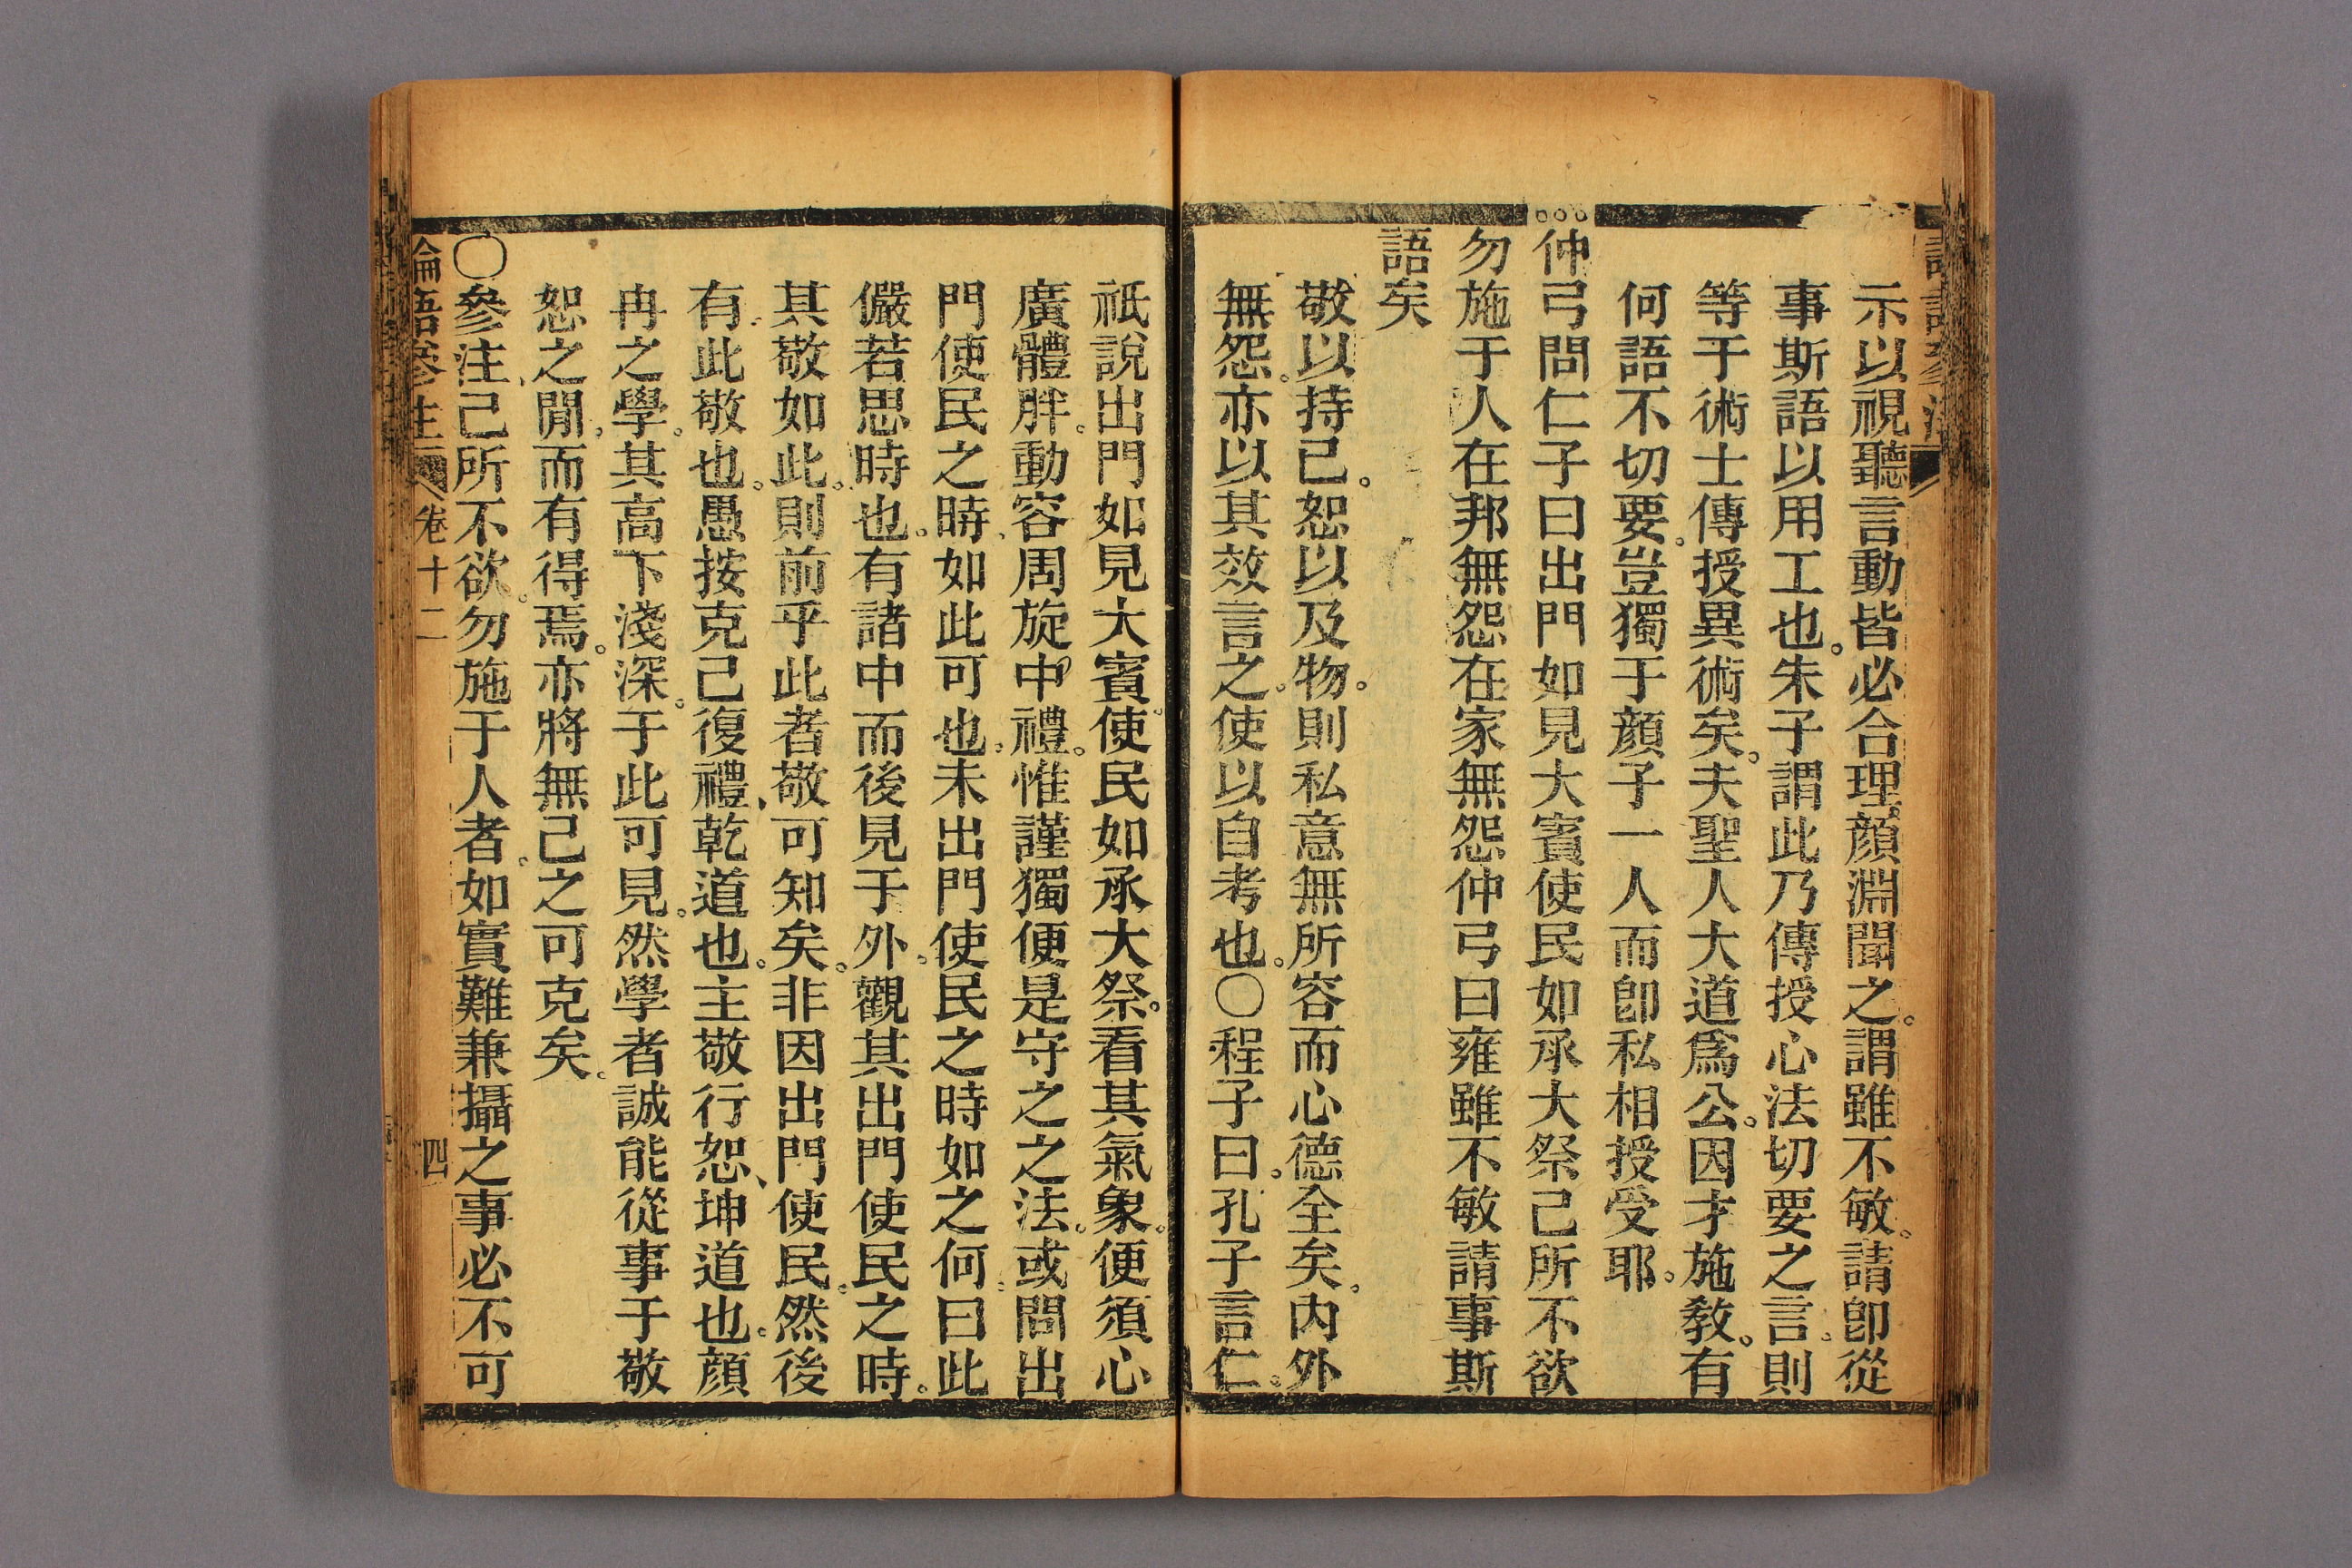 示以視聽言動皆必合理。顏淵聞之。謂雖不敏。請卽從
事斯語以用工也。朱子謂此乃傳授心法切要之言。則
等于術士傳授異術矣。夫聖人大道爲公。因才施教。有
何語不切要。豈獨于顏子一人而卽私相授受耶。
仲弓問仁子曰出門如見大賓使民如承大祭己所不欲
勿施于人在邦無怨在家無怨仲弓曰雍雖不敏請事斯
語矣
敬以持己。恕以及物。則私意無所容而心德全矣。內外
無怨。亦以其效言之。使以自考也。○程子曰。孔子言仁。
祇說出門如見大賓。使民如承大祭。看其氣象。便須心
廣體胖。動容周旋中禮。惟謹獨便是守之之法。或問出
門使民之時、如此可也。未出門使民之時如之何。曰此
儼若思時也。有諸中而後見于外。觀其出門使民之時。
其敬如此。則前乎此者敬可知矣。非因出門使民。然後
有此敬也。愚按克己復禮、乾道也。主敬行恕、坤道也。顏
冉之學。其高下淺深。于此可見。然學者誠能從事于敬
恕之閒。而有得焉。亦將無己之可克矣。
○參注、己所不欲。勿施于人者。如實難兼攝之事必不可
論語參注 卷十二 四